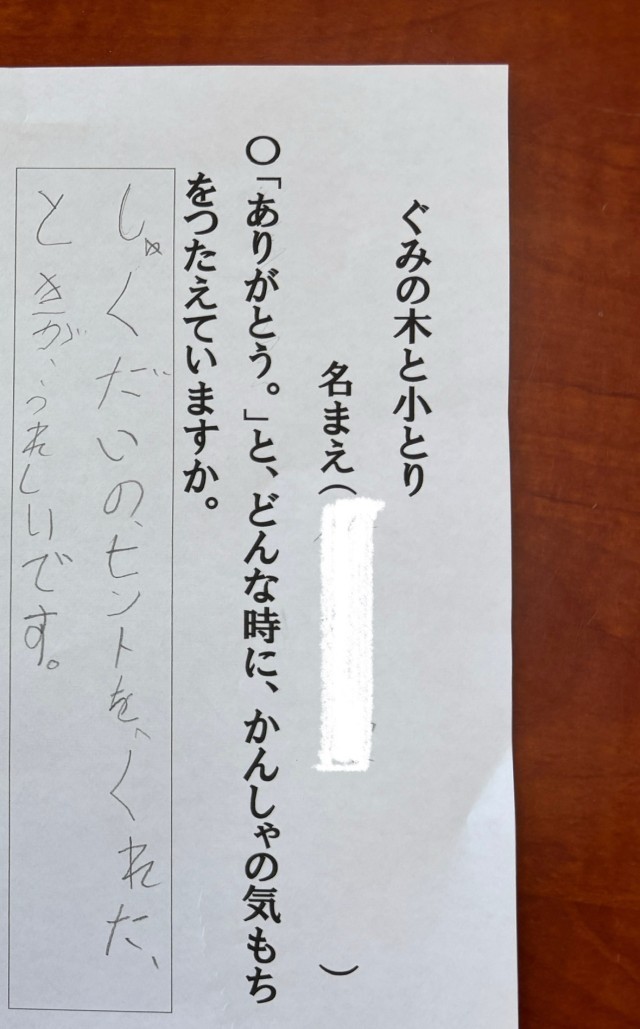 ぐみの木と小とり
名まえ（　　　）
〇「ありがとう。」と、どんな時に、かんしゃの気もち
をつたえていますか。
しゅくだいの、ヒントを、くれた、
ときが、うれしいです。